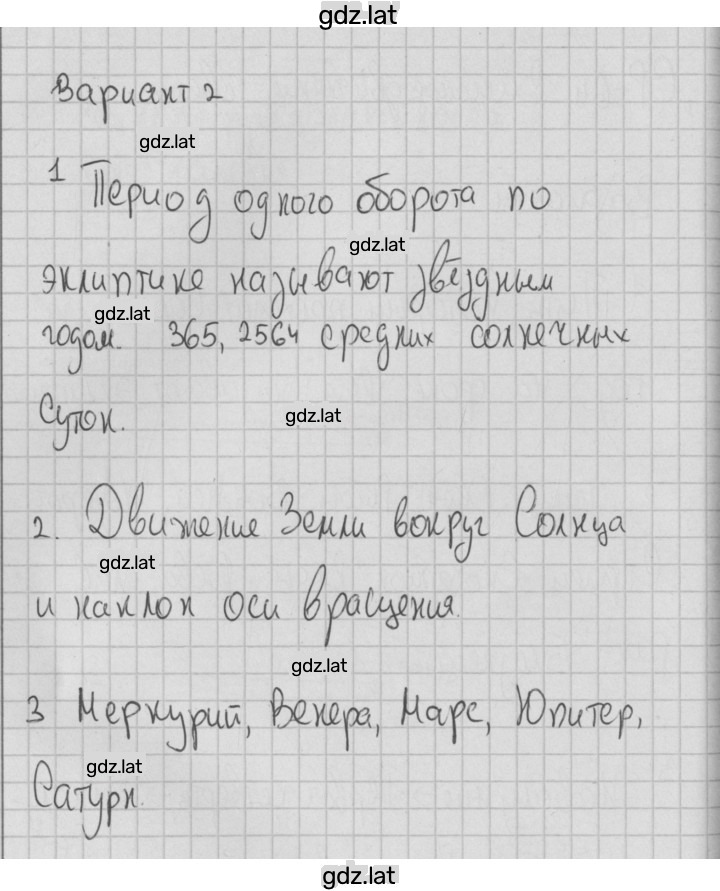 gdz.lat
Вариант 2
gdz.lat
1 Период одного оборота по
gdz.lat
эклиптике называют звёздным
gdz.lat
годом. 365,2564 средних солнечных
суток.
gdz.lat
2. Движение Земли вокруг Солнца
gdz.lat
и наклон оси вращения.
gdz.lat
3 Меркурий, Венера, Марс, Юпитер,
gdz.lat
Сатурн.
gdz.lat